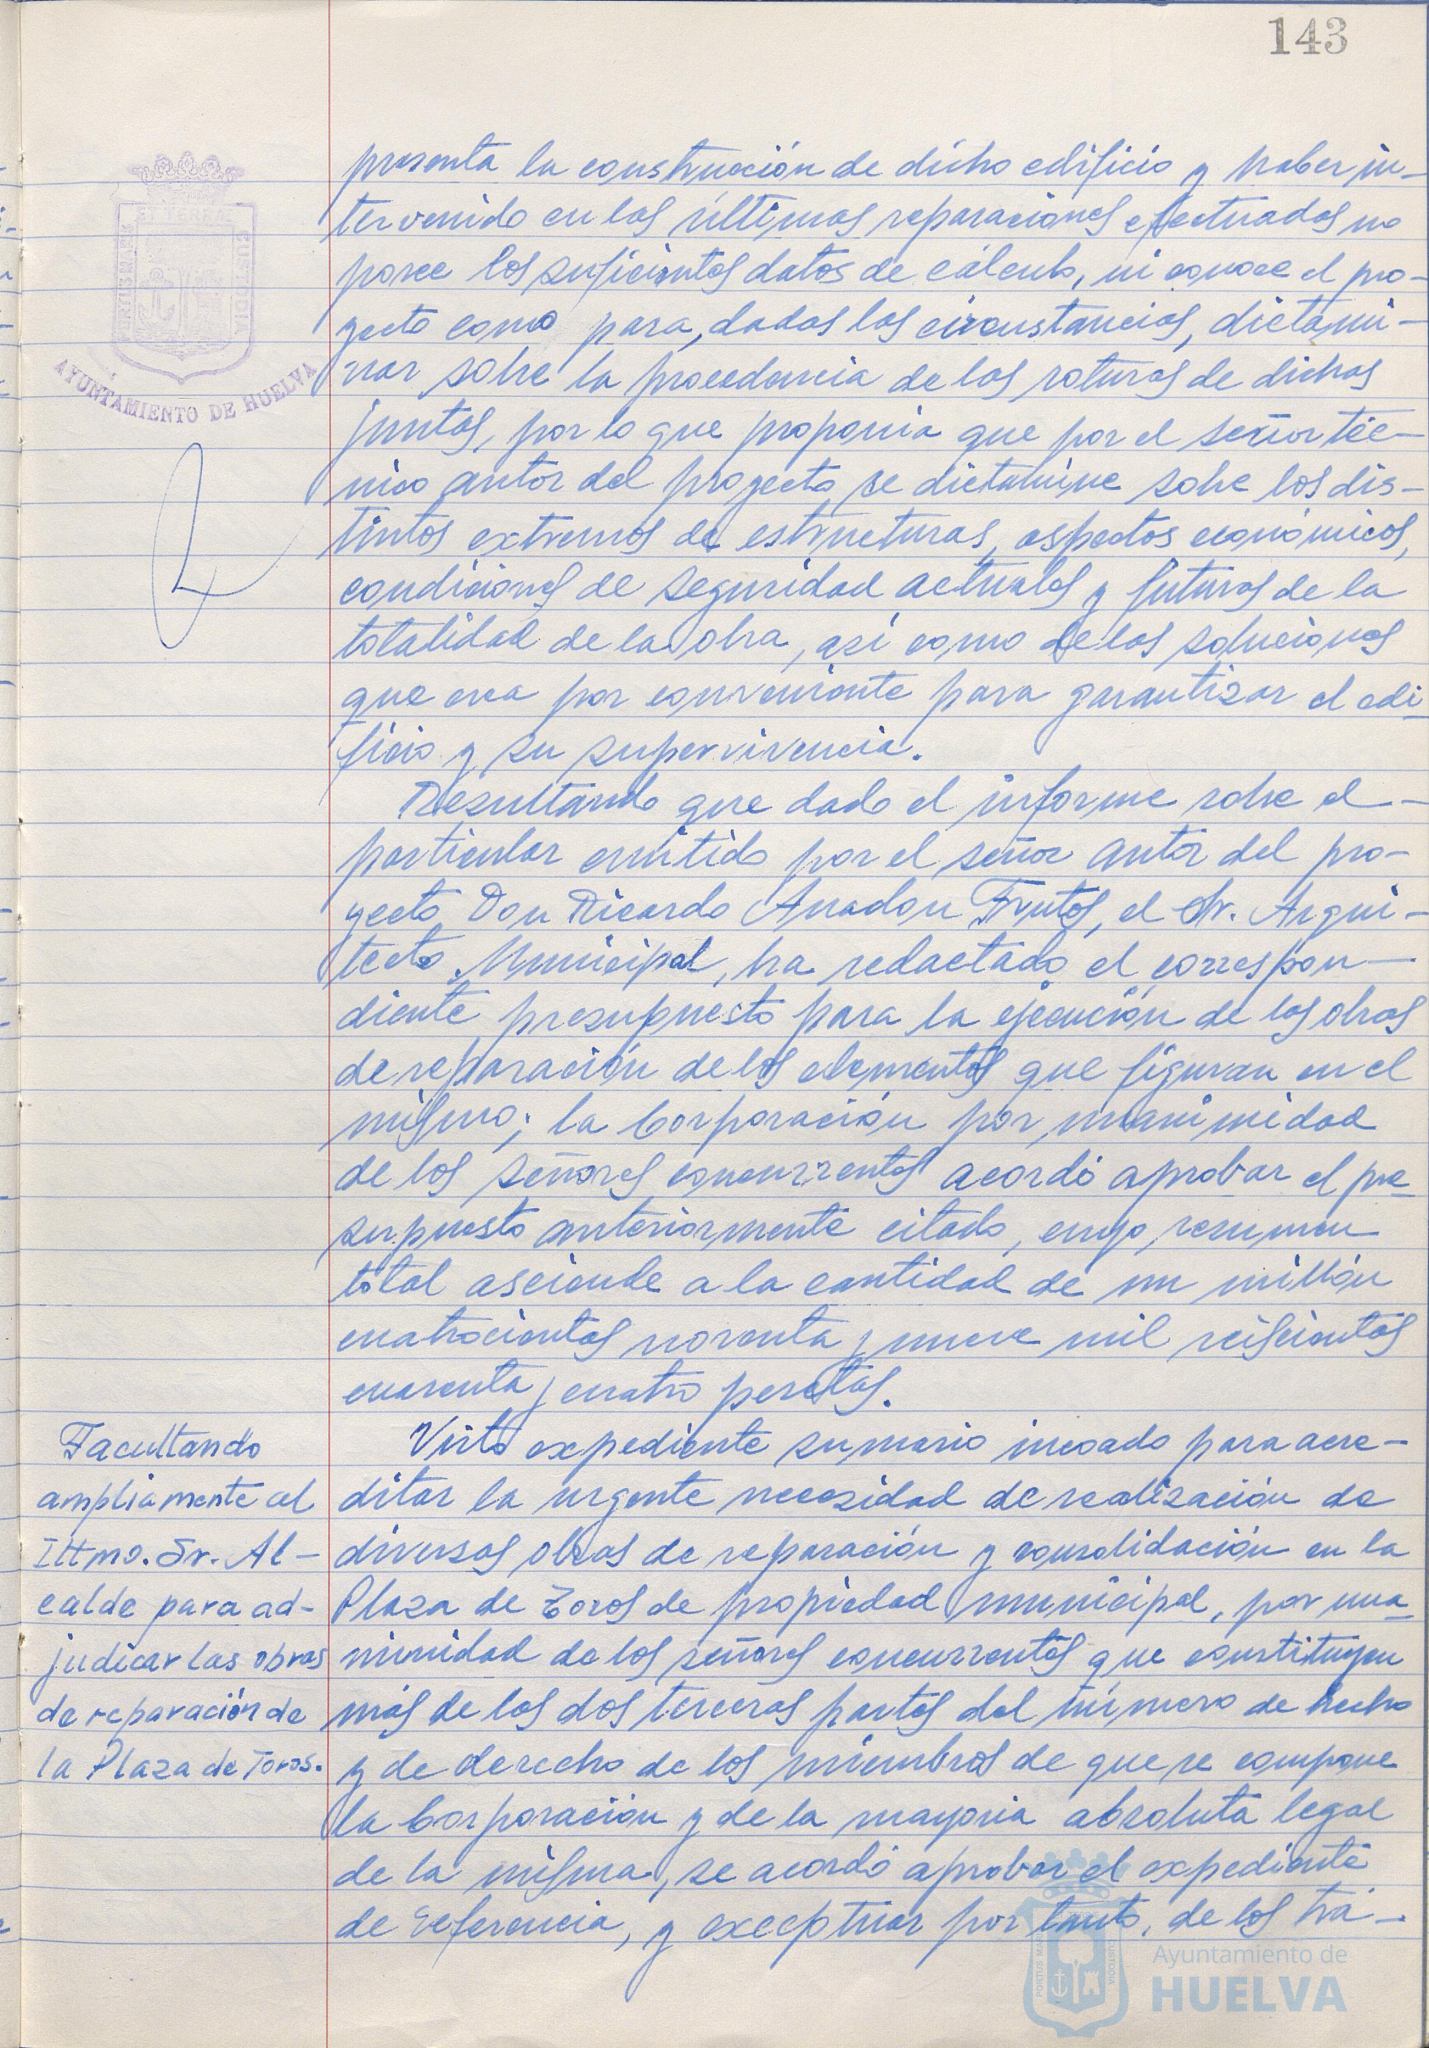 143
presenta la construcción de dicho edificio y haber in-
tervenido en las últimas reparaciones efectuadas no
posee los suficientes datos de cálculo, ni conoce el pro-
yecto como para, dadas las circustancias, dictami-
nar sobre la procedencia de las roturas de dichas
juntas, por lo que proponia que por el señor téc-
nico autor del proyecto se dictamine sobre los dis-
tintos extremos de estructuras, aspectos económicos,
condiciones de seguridad actuales y futuras de la
totalidad de la obra, así como de las soluciones
que crea por conveniente para garantizar el edi-
ficio y su supervivencia.
Resultando que dado el informe sobre el
particular emitido por el señor autor del pro-
yecto Don Ricardo Anadon Frutos, el Sr. Arqui-
tecto Municipal, ha redactado el correspon-
diente presupuesto para la ejecución de las obras
de reparación de los elementos que figuran en el
mismo; la Corporación por unanimidad
de los señores concurrentes acordó aprobar el pre-
supuesto anteriormente citado, cuyo resumen
total asciende a la cantidad de un millón
cuatrocientas noventa y nueve mil seiscientas
cuarenta y cuatro pesetas.
Facultando
ampliamente al
Iltmo. Sr. Al-
calde para ad-
judicar las obras
de reparación de
la Plaza de Toros.
Visto expediente sumario incoado para acre-
ditar la urgente necesidad de realización de
diversas obras de reparación y consolidación en la
Plaza de Toros de propiedad municipal, por una-
nimidad de los señores concurrentes que constituyen
más de las dos terceras partes del número de hecho
y de derecho de los miembros de que se compone
la Corporación y de la mayoria absoluta legal
de la misma, se acordó aprobar el expediente
de referencia, y exceptuar por tanto, de los trá-
ET TERRAE
PORTUS MARIS
CUSTODIA
AYUNTAMIENTO DE HUELVA
PORTUS MARIS
CUSTODIA
Ayuntamiento de
HUELVA